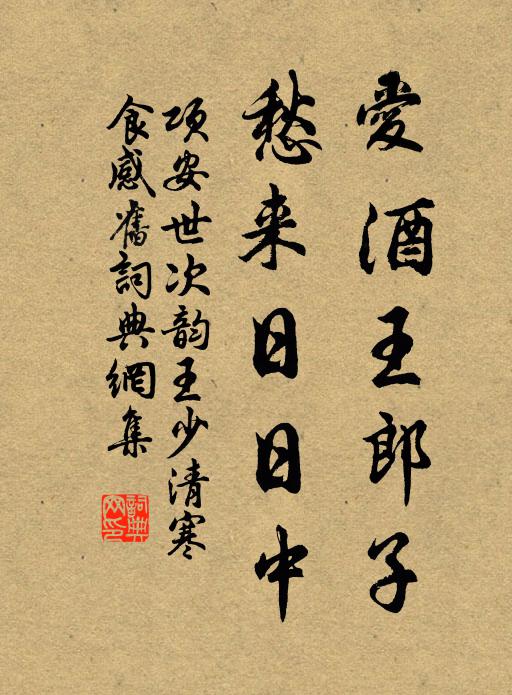 愛酒王郎子
愁来日日中
项安世次韵王少清寒
食感舊詞典網集
詞典網印